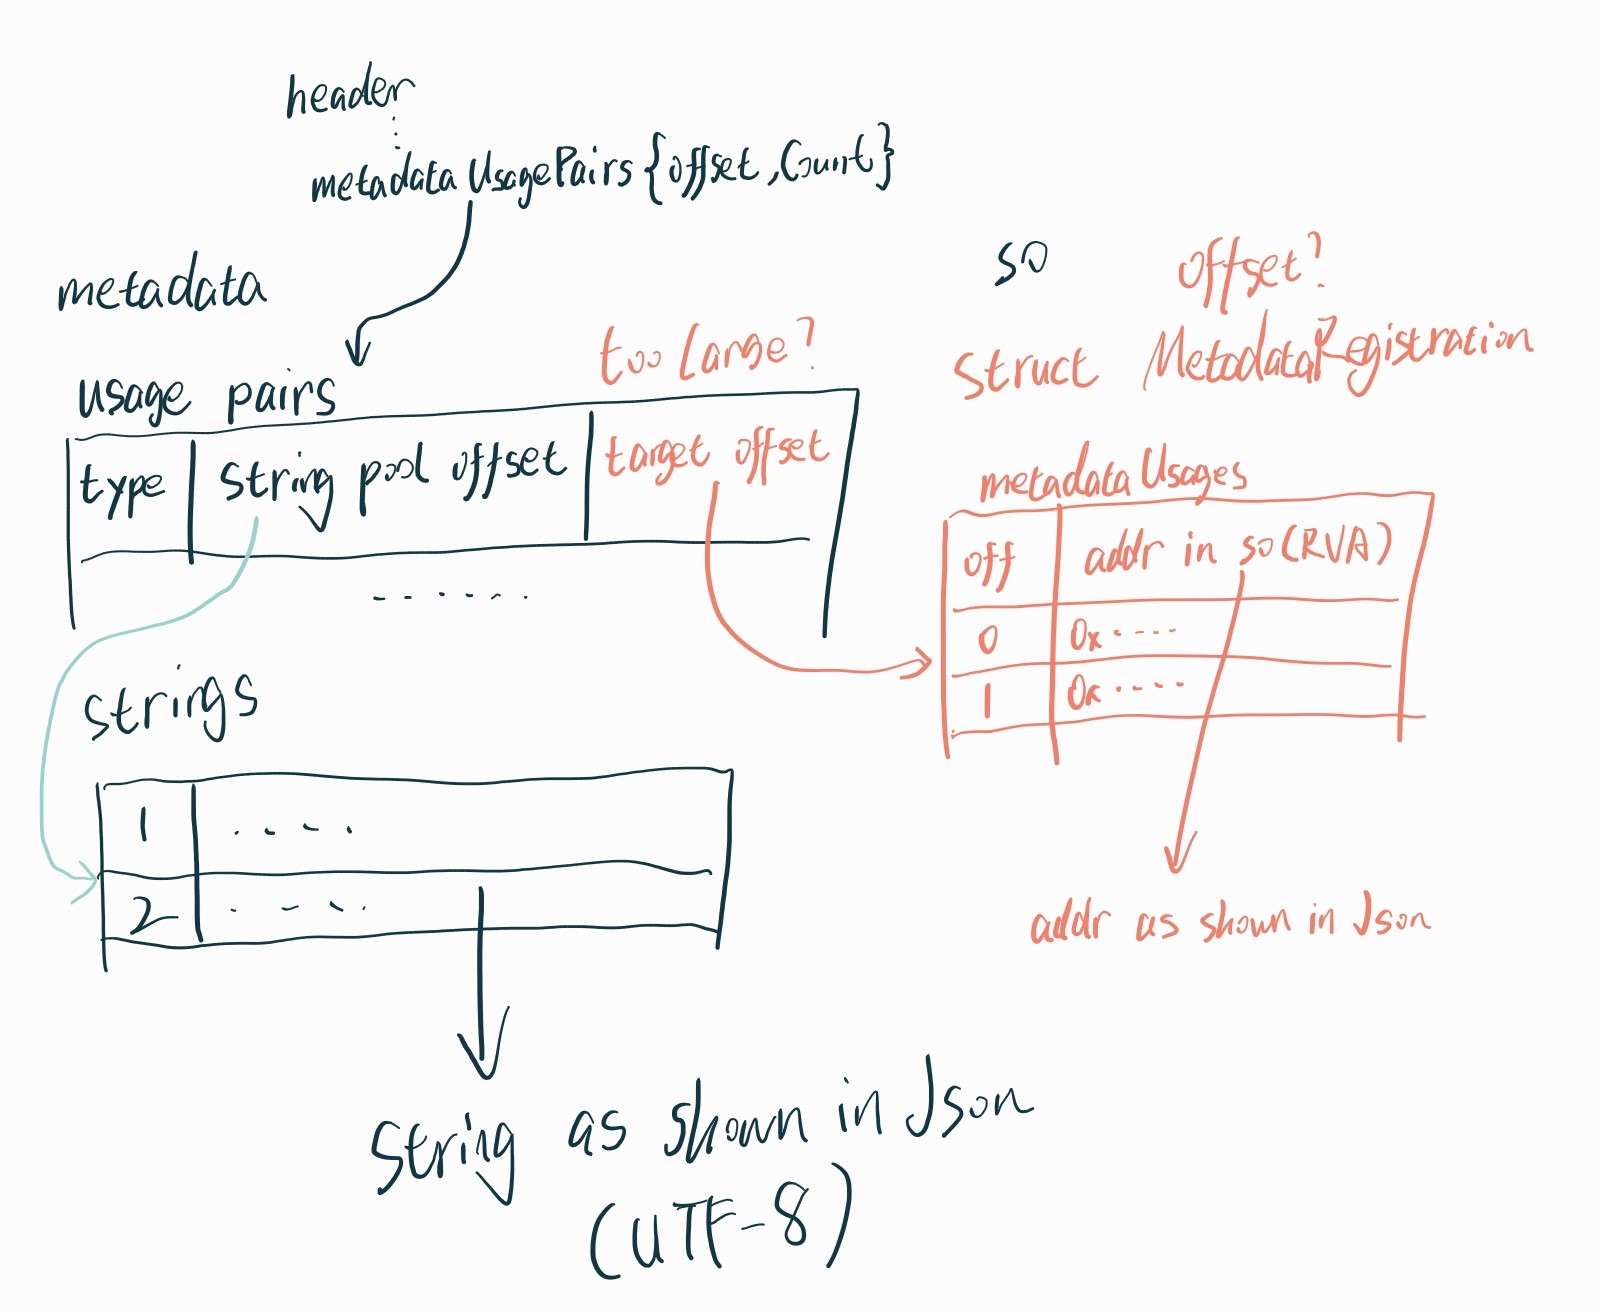 header
metadataUsagePairs{offset,Count}
metadata
usage pairs
too large?
type
String pool offset
target offset
so
offset?
Struct MetadataRegistration
metadataUsages
off
addr in so(RVA)
0
0x....
1
0x....
addr as shown in Json
Strings
1
....
2
....
String as shown in Json
(UTF-8)